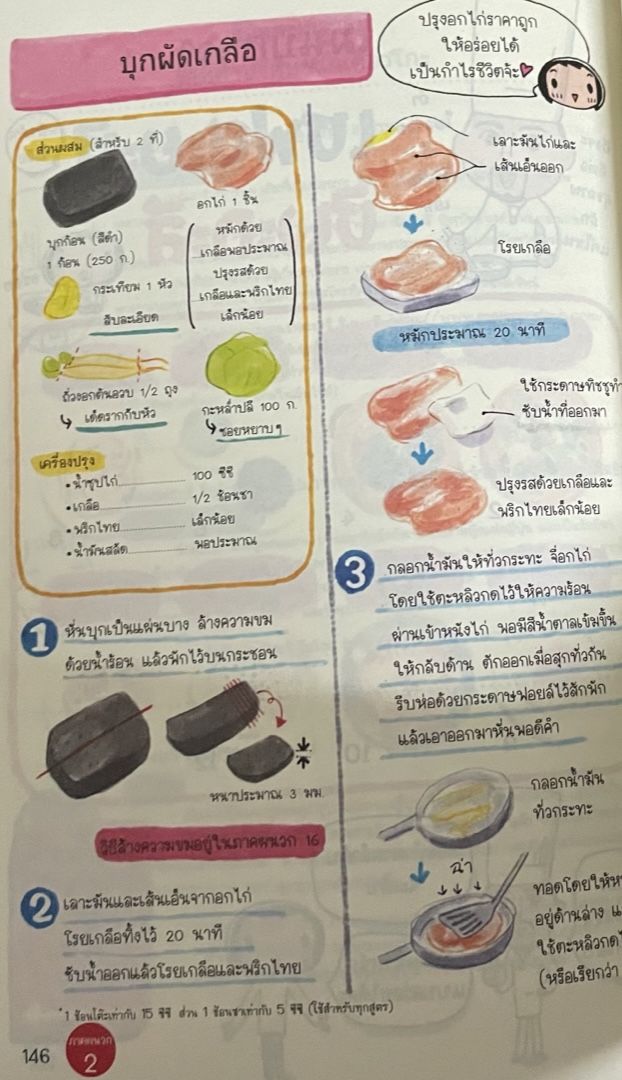 บุกผัดเกลือ
ปรุงอกไก่ราคาถูก
ให้อร่อยได้
เป็นกำไรชีวิตจ้ะ
ส่วนผสม (สำหรับ 2 ที่)
บุกก้อน (สีดำ)
1 ก้อน (250 ก.)
อกไก่ 1 ชิ้น
หมักด้วย
เกลือพอประมาณ
ปรุงรสด้วย
เกลือและพริกไทย
เล็กน้อย
กระเทียม 1 หัว
สับละเอียด
ถั่วงอกต้นอวบ 1/2 ถุง
เด็ดรากกับหัว
กะหล่ำปลี 100 ก.
ซอยหยาบๆ
เครื่องปรุง
•น้ำซุปไก่ 100 ซีซี
•เกลือ 1/2 ช้อนชา
•พริกไทย เล็กน้อย
•น้ำมันสลัด พอประมาณ
1 หั่นบุกเป็นแผ่นบาง ล้างความขม
ด้วยน้ำร้อน แล้วพักไว้บนกระชอน
หนาประมาณ 3 มม.
วิธีล้างความขมอยู่ในภาคผนวก 16
2 เลาะมันและเส้นเอ็นจากอกไก่
โรยเกลือทิ้งไว้ 20 นาที
ซับน้ำออกแล้วโรยเกลือและพริกไทย
เลาะมันไก่และ
เส้นเอ็นออก
โรยเกลือ
หมักประมาณ 20 นาที
ใช้กระดาษทิชชูทำ
ซับน้ำที่ออกมา
ปรุงรสด้วยเกลือและ
พริกไทยเล็กน้อย
3 กลอกน้ำมันให้ทั่วกระทะ จี่อกไก่
โดยใช้ตะหลิวกดไว้ให้ความร้อน
ผ่านเข้าหนังไก่ พอมีสีน้ำตาลเข้มขึ้น
ให้กลับด้าน ตักออกเมื่อสุกทั่วกัน
รีบห่อด้วยกระดาษฟอยล์ไว้สักพัก
แล้วเอาออกมาหั่นพอดีคำ
กลอกน้ำมัน
ทั่วกระทะ
ฉ่า
ทอดโดยให้ห
อยู่ด้านล่าง แ
ใช้ตะหลิวกด
(หรือเรียกว่า
*1 ช้อนโต๊ะเท่ากับ 15 ซีซี ส่วน 1 ช้อนชาเท่ากับ 5 ซีซี (ใช้สำหรับทุกสูตร)
146
ภาคผนวก
2